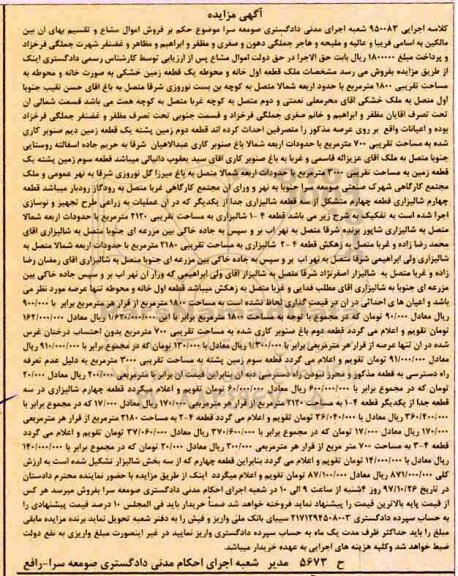 آگهی مزایده
کلاسه اجرایی ۹۵۰۰۸۳ شعبه اجرای مدنی دادگستری صومعه سرا موضوع حکم بر فروش اموال مشاع و تقسیم بهای آن بین
مالکین به اسامی فریبا و عالیه و ملیحه و هاجر جملگی دهون و صغری و مظفر و ابراهیم و مظاهر و غضنفر شهرت جملگی فرخزاد
و پرداخت مبلغ ۱۸۰۰۰۰۰ ریال بابت حق الاجرا در حق دولت اموال مشاع پس از ارزیابی توسط کارشناس رسمی دادگستری اینک
از طریق مزایده بفروش می رسد مشخصات ملک قطعه اول خانه و محوطه یک قطعه زمین خشکی به صورت خانه و محوطه به
مساحت تقریبی ۱۸۰۰ مترمربع با حدود اربعه شمالا متصل به کوچه بن بست نوروزی شرقا متصل به باغ اقای حسن نقیب جنوبا
اول متصل به ملک خشکی اقای محرمعلی نعمتی و دوم متصل به کوچه غربا متصل به کوچه همت می باشد قسمت شمالی آن
تحت تصرف اقایان مظفر و ابراهیم و خانم صغری جملگی فرخزاد و قسمت جنوبی تحت تصرف مظفر و غضنفر جملگی فرخزاد
بوده و اعیانات واقع بر روی عرصه مذکور را متصرفین احداث کرده اند قطعه دوم زمین پشته یک قطعه زمین دیم صنوبر کاری
شده به مساحت تقریبی ۷۰۰ مترمربع با حدودات اربعه شمالا باغ صنوبر کاری عبدالاهیان شرقا به حریم جاده اسفالته روستایی
جنوبا متصل به ملک اقای عزیزاله قاسمی و غربا به باغ صنوبر کاری اقای سید یعقوب دانیالی میباشد قطعه سوم زمین پشته یک
قطعه زمین به مساحت تقریبی ۳۰۰۰ مترمربع با حدودات اربعه شمالا متصل به باغ میرزا گل نوروزی شرقا به نهر عمومی و ملک
مجتمع کارگاهی شهرک صنعتی صومعه سرا جنوبا به نهر و ورای آن مجتمع کارگاهی غربا متصل به رودگاز رودبار میباشد قطعه
چهارم شالیزاری قطعه چهارم متشکل از سه قطعه شالیزاری جدا از یکدیگر که در آن عملیات به زراعی طرح تجهیز و نوسازی
اجرا شده است به تفکیک به شرح زیر می باشد قطعه ۴-۱ شالیزاری به مساحت تقریبی ۲۱۲۰ مترمربع با حدودات اربعه شمالا
متصل به شالیزاری شاپور پرنده شرقا متصل به نهر آب بر و سپس به جاده خاکی بین مزرعه ای جنوبا متصل به شالیزاری اقای
محمد رضا زاده و غربا متصل به زهکش قطعه ۴-۲ شالیزاری به مساحت تقریبی ۲۱۸۰ مترمربع با حدودات اربعه شمالا متصل به
شالیزاری ولی ابراهیمی شرقا متصل به نهر آب بر و سپس به جاده خاکی بین مزرعه ای جنوبا متصل به شالیزاری اقای رمضان رضا
زاده و غربا متصل به شالیزار اصغرنژاد شرقا متصل به شالیزار اقای ولی ابراهیمی که ورا آن نهر آب بر و سپس جاده خاکی بین
مزرعه ای جنوبا به شالیزاری اقای مطلب فدایی و غربا متصل به زهکش میباشد قطعه اول خانه و محوطه تنها عرصه مورد نظر می
باشد و اعیان های احداثی در آن در قیمت گذاری لحاظ نشده است به مساحت ۱۸۰۰ مترمربع از قرار هر مترمربع برابر با ۹۰۰/۰۰۰
ریال معادل ۹۰/۰۰۰ تومان که در مجموع با مساحت ۱۸۰۰ مترمربع برابر با ۱/۶۲۰/۰۰۰/۰۰۰ ریال معادل ۱۶۲/۰۰۰/۰۰۰
تومان تقویم و اعلام می گردد قطعه دوم باغ صنوبر کاری شده به مساحت تقریبی ۷۰۰ مترمربع بدون احتساب درختان غرس
شده در آن تنها عرصه از قرار هر مترمربعی برابر با ۱/۳۰۰/۰۰۰ ریال معادل با ۱۳۰/۰۰۰ تومان که در مجموع برابر با ۹۱۰/۰۰۰/۰۰۰ ریال
۹۱/۰۰۰/۰۰۰ تومان تقویم و اعلام می گردد قطعه سوم زمین پشته به مساحت تقریبی ۳۰۰۰ مترمربع به دلیل عدم تعرفه
راه دسترسی به قطعه مذکور و مجاز نبودن راه دسترسی به آن بنابراین قیمت آن برابر با مترمربعی ۲۰۰/۰۰۰ ریال معادل ۲۰/۰۰۰
تومان که در مجموع برابر با ۶۰۰/۰۰۰/۰۰۰ ریال معادل ۶۰/۰۰۰/۰۰۰ تومان تقویم و اعلام میگردد قطعه چهارم شالیزاری در سه
قطعه جدا از یکدیگر قطعه ۴-۱ به مساحت ۲۱۲۰ مترمربع ازقرار مترمربعی ۱۷۰/۰۰۰ ریال معادل ۱۷/۰۰۰ که در مجموع برابر با
۳۶۰/۴۰۰/۰۰۰ ریال معادل با ۳۶/۰۴۰/۰۰۰ تومان تقویم و اعلام می گردد قطعه ۴-۲ به مساحت ۲۱۸۰ مترمربع از قرار هر مترمربعی
۱۷۰/۰۰۰ ریال معادل ۱۷/۰۰۰ تومان که در مجموع برابر با ۳۷۰/۶۰۰/۰۰۰ ریال معادل ۳۷/۰۶۰/۰۰۰ تومان تقویم و اعلام می گردد
قطعه ۴-۳ به مساحت ۷۰۰ متر مربع از قرار هر مترمربعی ۲۰۰/۰۰۰ ریال معادل ۲۰/۰۰۰ تومان که در مجموع برابر با ۱۴۰/۰۰۰/۰۰۰
ریال معادل با ۱۴/۰۰۰/۰۰۰ تومان تقویم و اعلام می گردد بنابراین قطعه چهارم که از سه بخش شالیزار تشکیل شده است به ارزش
کلی ۸۷۱/۰۰۰/۰۰۰ ریال معادل ۸۷/۱۰۰/۰۰۰ تومان تقویم و اعلام میگردد اینک از طریق مزایده با حضور نماینده محترم دادستان
در تاریخ ۹۷/۱۰/۲۶ روز ۴شنبه از ساعت ۹ الی ۱۰ در شعبه اجرای احکام مدنی دادگستری صومعه سرا بفروش میرسد هر کس
از قیمت پایه بالاترین قیمت را پیشنهاد نماید فروخته خواهد شد ضمنا خریدار باید فی المجلس ۱۰ درصد قیمت پیشنهادی را
به حساب سپرده دادگستری ۲۱۷۱۲۹۴۵۰۸۰۰۳ سیبای بانک ملی واریز و فیش را به دفتر شعبه تحویل نماید برنده مزایده مابقی
مبلغ را باید حداکثر ظرف مدت یک ماه به حساب سپرده دادگستری واریز نمایند در غیر اینصورت مبلغ واریزی به نفع دولت
ضبط خواهد شد وکلیه هزینه های اجرایی به عهده خریدار میباشد.
ح ۵۶۷۳ مدیر شعبه اجرای احکام مدنی دادگستری صومعه سرا-رافع